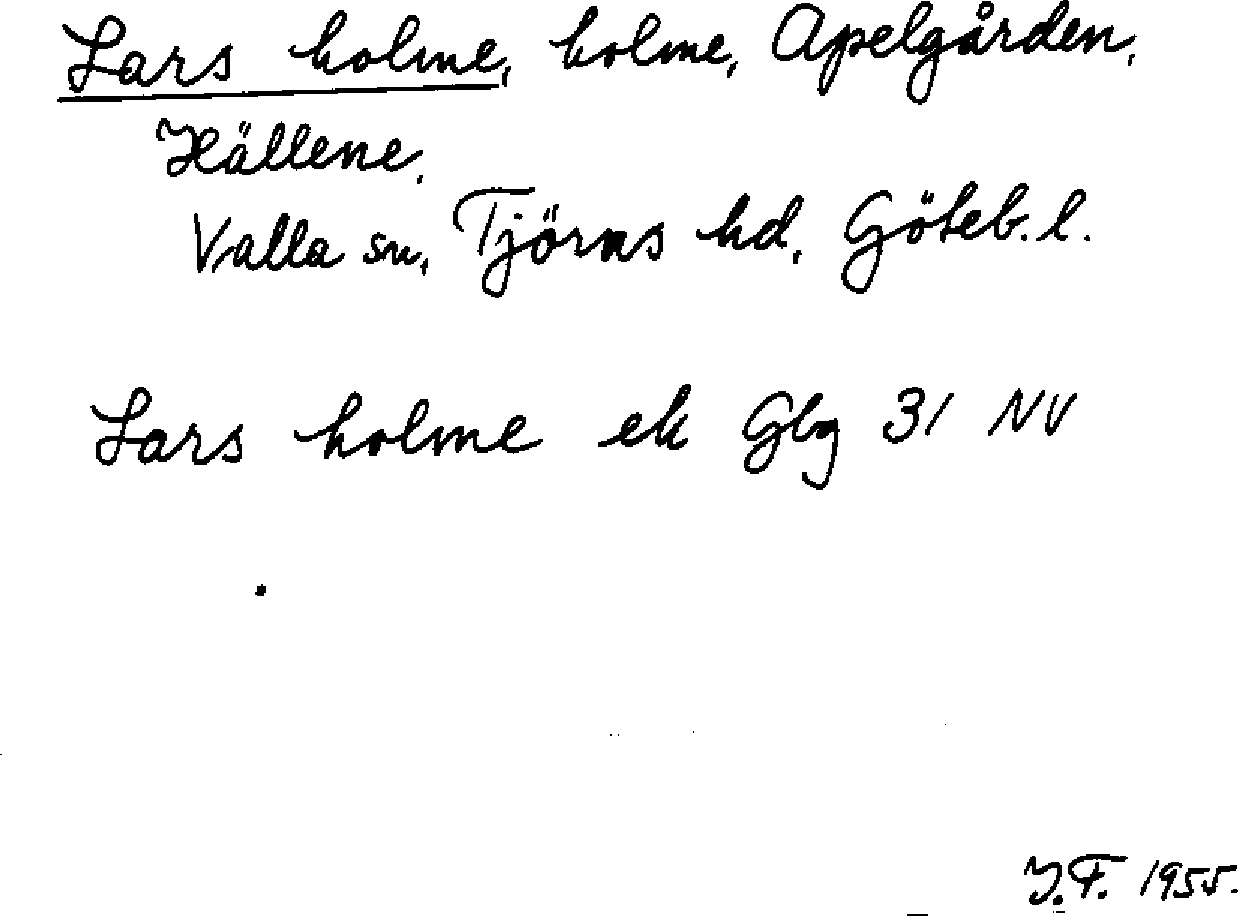 Lars holme, holme, Apelgården,
Hällene,
Valla sn, Tjörns hd, Göteb. l.
Lars holme ek Gbg 31 NV
J.F. 1955.